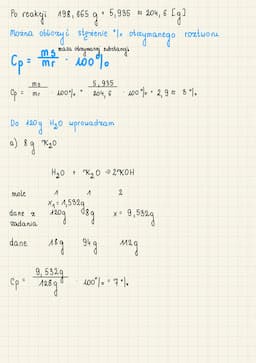 Po reakcji 198,665 g + 5,935 ≈ 204,6 [g]
Można obliczyć stężenie % otrzymanego roztworu
masa otrzymanej substancji
Cp = ms/mr · 100%
Cp = ms/mr · 100% = 5,935/204,6 · 100% = 2,9 ≈ 3%
Do 120g H₂O wprowadzam
a) 8g K₂O
H₂O + K₂O → 2KOH
mole 1 1 2
x₁ = 1,532g
dane z zadania 120g 8g x = 9,532g
dane 18g 94g 112g
Cp = 9,532g/128g · 100% = 7%